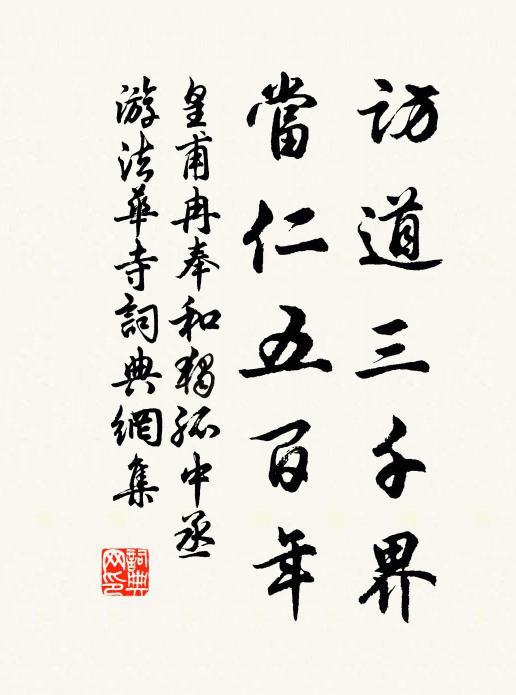 訪道三千界
當仁五百年
皇甫冉奉和獨孤中丞
游法華寺詞典網集
詞典
网印